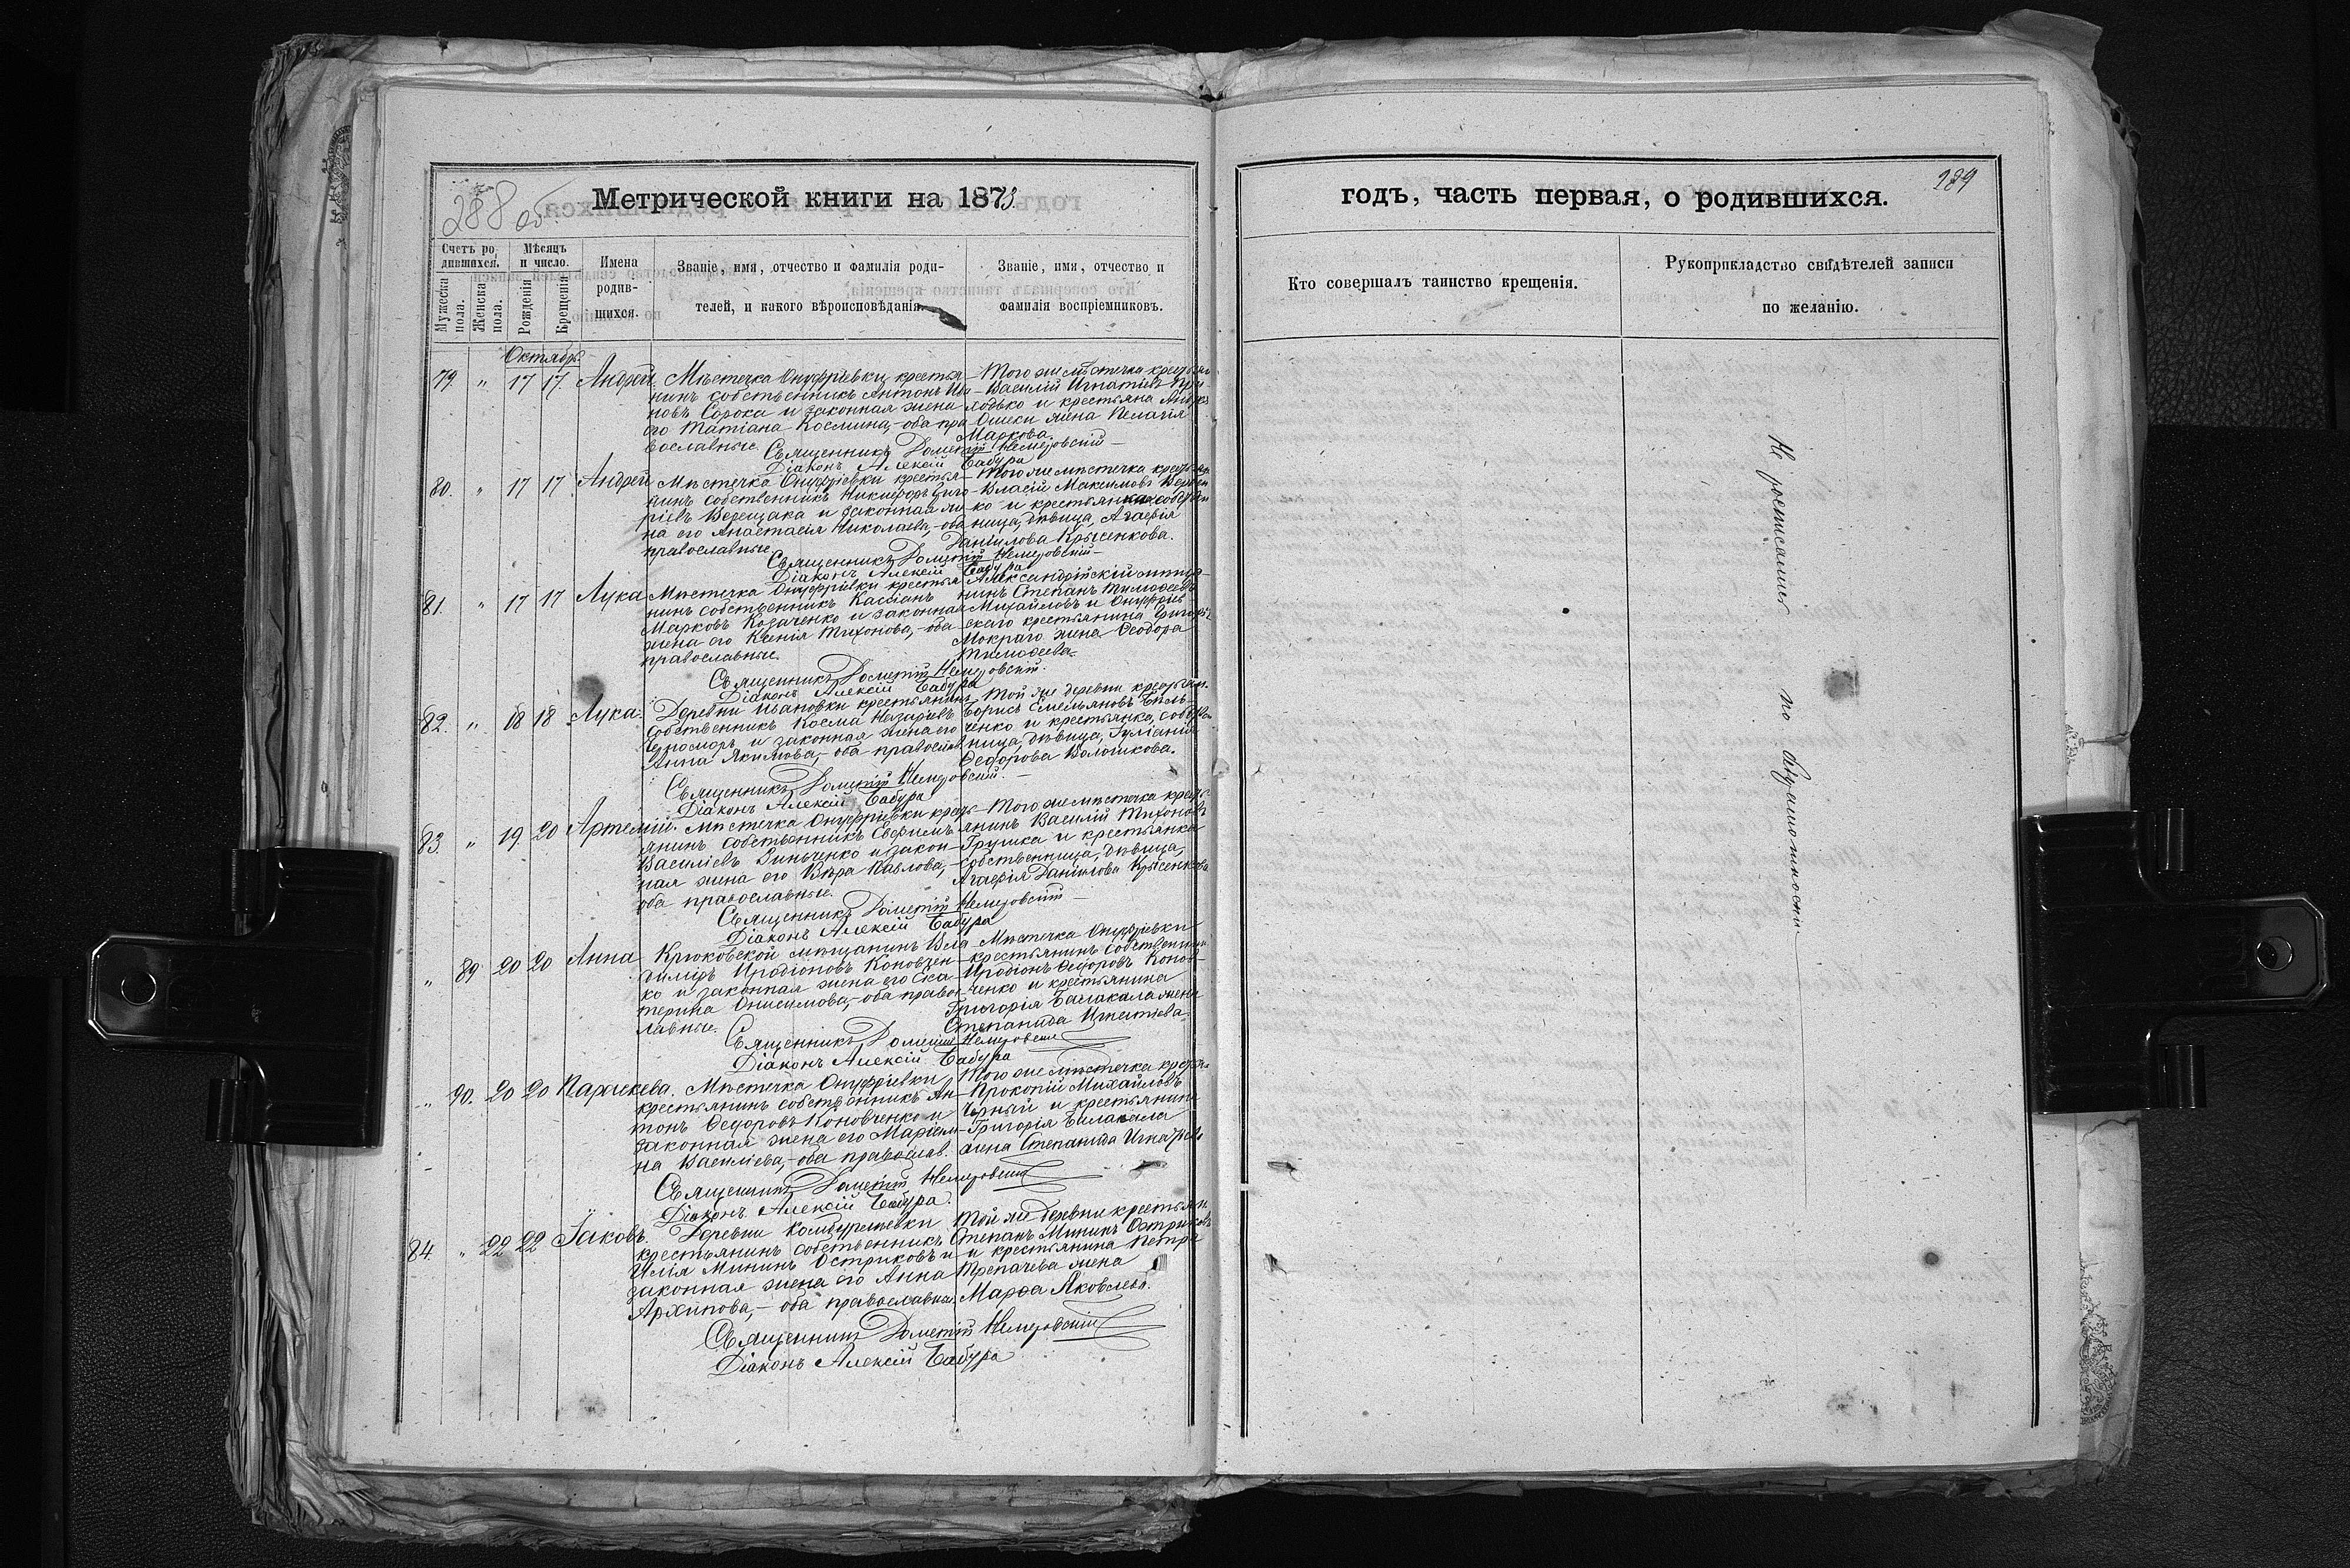 288 об.
Метрической книги на 1873
Счетъ ро
дившихся.
Мужеска
пола.
Женска
пола.
Мѣсяцъ
и число.
Рожденія
Крещенія
Имена
родив-
шихся.
Званіе, имя, отчество и фамилія роди-
телей, и какого вѣроисповѣданія.
Званіе, имя, отчество и
фамилія воспріемниковъ.
Октябрь
79. " 17 17. Андрей
Мѣстечка Онуфріевки крестья-
нинъ собственникъ Антонъ Ива-
новъ Сорока и законная жена
его Татіана Космина, - оба пра
вославные.
Того же мѣстечка
Василій Игнатіевъ
и крестьяна
жена Пелагія
Маркова.
Священникъ Дометій Немеровскій
Діаконъ Алексій Бабура
80. " 17 17 Андрей
Мѣстечка Онуфріевки крестья-
нинъ собственникъ Никифоръ Григо-
ріевъ Верещака и законная же-
на его Анастасія Николаева, - оба
православные.
Того же мѣстечка
Власій Максимовъ
ко и крестьянка собствен
ница, дѣвица, Агафія
Даніилова Крысенкова.
Священникъ Дометій Немеровскій
Діаконъ Алексій Бабура
81. " 17 17 Лука
Мѣстечка Онуфріевки крестья
нинъ собственникъ Кассіанъ
Марковъ Козаченко и законная
жена его Ксенія Тихонова, - оба
православные.
Александрійскій мѣща-
нинъ Степанъ Тимофеевъ
Михайловъ и Онуфріев
скаго крестьянина Григорія
Мокраго жена Ѳеодора
Тимофеева.
Священникъ Дометій Немеровскій.
Діаконъ Алексій Бабура
82. " 18 18 Лука.
Деревни Ивановки крестьянинъ
собственникъ Косма Назаріевъ
Черноморъ и законная жена его
Анна Якимова, - оба православ.
Той же деревни крестьян.
Борисъ Емельяновъ Биль-
ченко и крестьянка, собствен
ница, дѣвица, Іуліанія
Ѳедорова Волошкова.
Священникъ Дометій Немеровскій.
Діаконъ Алексій Бабура
83 " 19. 20 Артемій.
Мѣстечка Онуфріевки кресть-
янинъ собственникъ Евфимъ
Василіевъ Зинченко и закон-
ная жена его Вѣра Павлова, -
оба православные.
Того же мѣстечка кресть
янинъ Василій Тихоновъ
Грушка и крестьянка
собственница, дѣвица,
Агафія Даніилова Крысенкова
Священникъ Дометій Немеровскій
Діаконъ Алексій Бабура
" 89 20 20 Анна
Крюковской мѣщанинъ Вла
димиръ Иродіоновъ Коновчен
ко и законная жена его Ека-
терина Онисимова, - оба правос
лавные.
Мѣстечка Онуфріевки
крестьянинъ собственникъ
Иродіонъ Ѳедоровъ Конов-
ченко и крестьянина
Григорія Балакала жена
Степанида Игнатіева.
Священникъ Дометій Немеровскій
Діаконъ Алексій Бабура
" 90. 20 20 Параскева.
Мѣстечка Онуфріевки
крестьянинъ собственникъ Ан-
тонъ Ѳедоровъ Коновченко и
законная жена его Маріам-
на Василіева, - оба православ.
Того же мѣстечка
Прокопій Михайловъ
Черный и крестьянина
Григорія Балакала
жена Степанида Игнатіева
Священникъ Дометій Немеровскій
Діаконъ Алексій Бабура.
84. " 22 22 Іаковъ.
Деревни Камбурлеевки
крестьянинъ собственникъ
Илія Мининъ Остриковъ и
законная жена его Анна
Архипова, - оба православные.
Той же деревни крестьян.
Степанъ Мининъ Остриковъ
и крестьянина Петра
Трепачева жена
Марфа Яковлева.
Священникъ Дометій Немеровскій
Діаконъ Алексій Бабура
289
годъ, часть первая, о родившихся.
Кто совершалъ таинство крещенія.
Рукоприкладство свидѣтелей записи
по желанію.
Не росписались по безграмотности